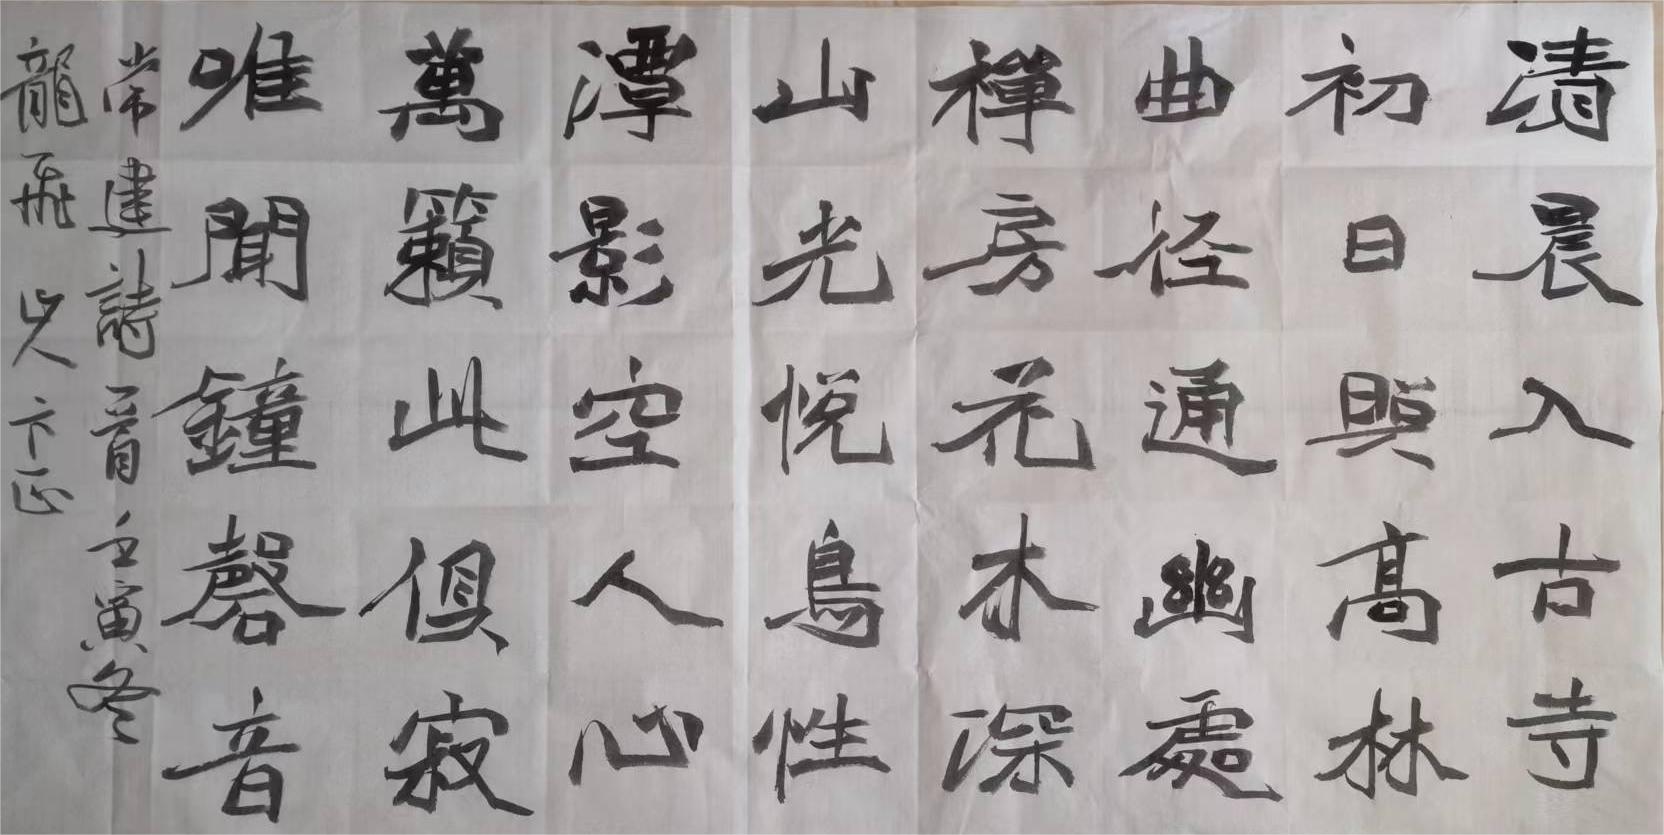 清晨入古寺
初日照高林
曲径通幽處
禪房花木深
山光悦鳥性
潭影空人心
萬籟俱寂
唯聞鐘磬音
常建詩一首壬寅冬
龍飛山人卞正